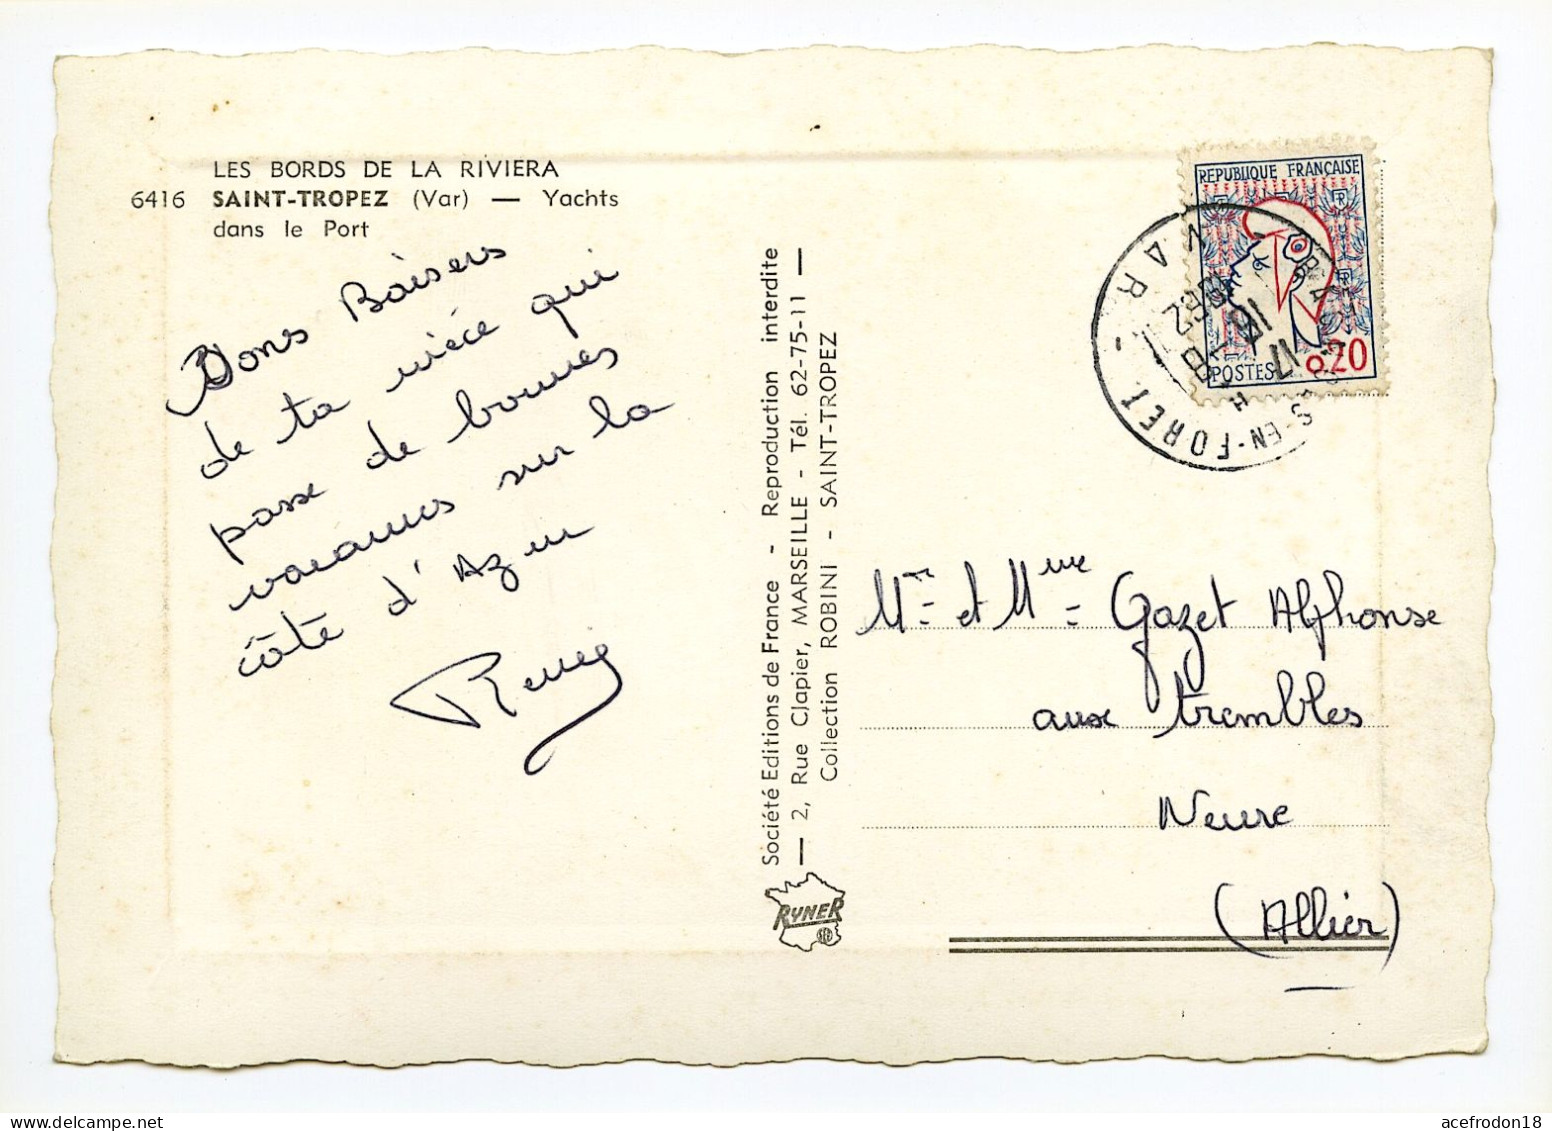 LES BORDS DE LA RIVIERA
6416 SAINT-TROPEZ (Var) — Yachts
dans le Port
Bons Baisers
de ta nièce qui
passe de bonnes
vacances sur la
côte d'Azur
Remy
Société Editions de France - Reproduction interdite
— 2, Rue Clapier, MARSEILLE - Tél. 62-75-11 —
Collection ROBINI - SAINT-TROPEZ
RYNER
REPUBLIQUE FRANÇAISE
POSTES 0,20
S-EN-FORET - VAR -
17 H
16 - 8
1962
Mr et Mme Gazet Alphonse
aux trembles
Neure
(Allier)
acefrodon18